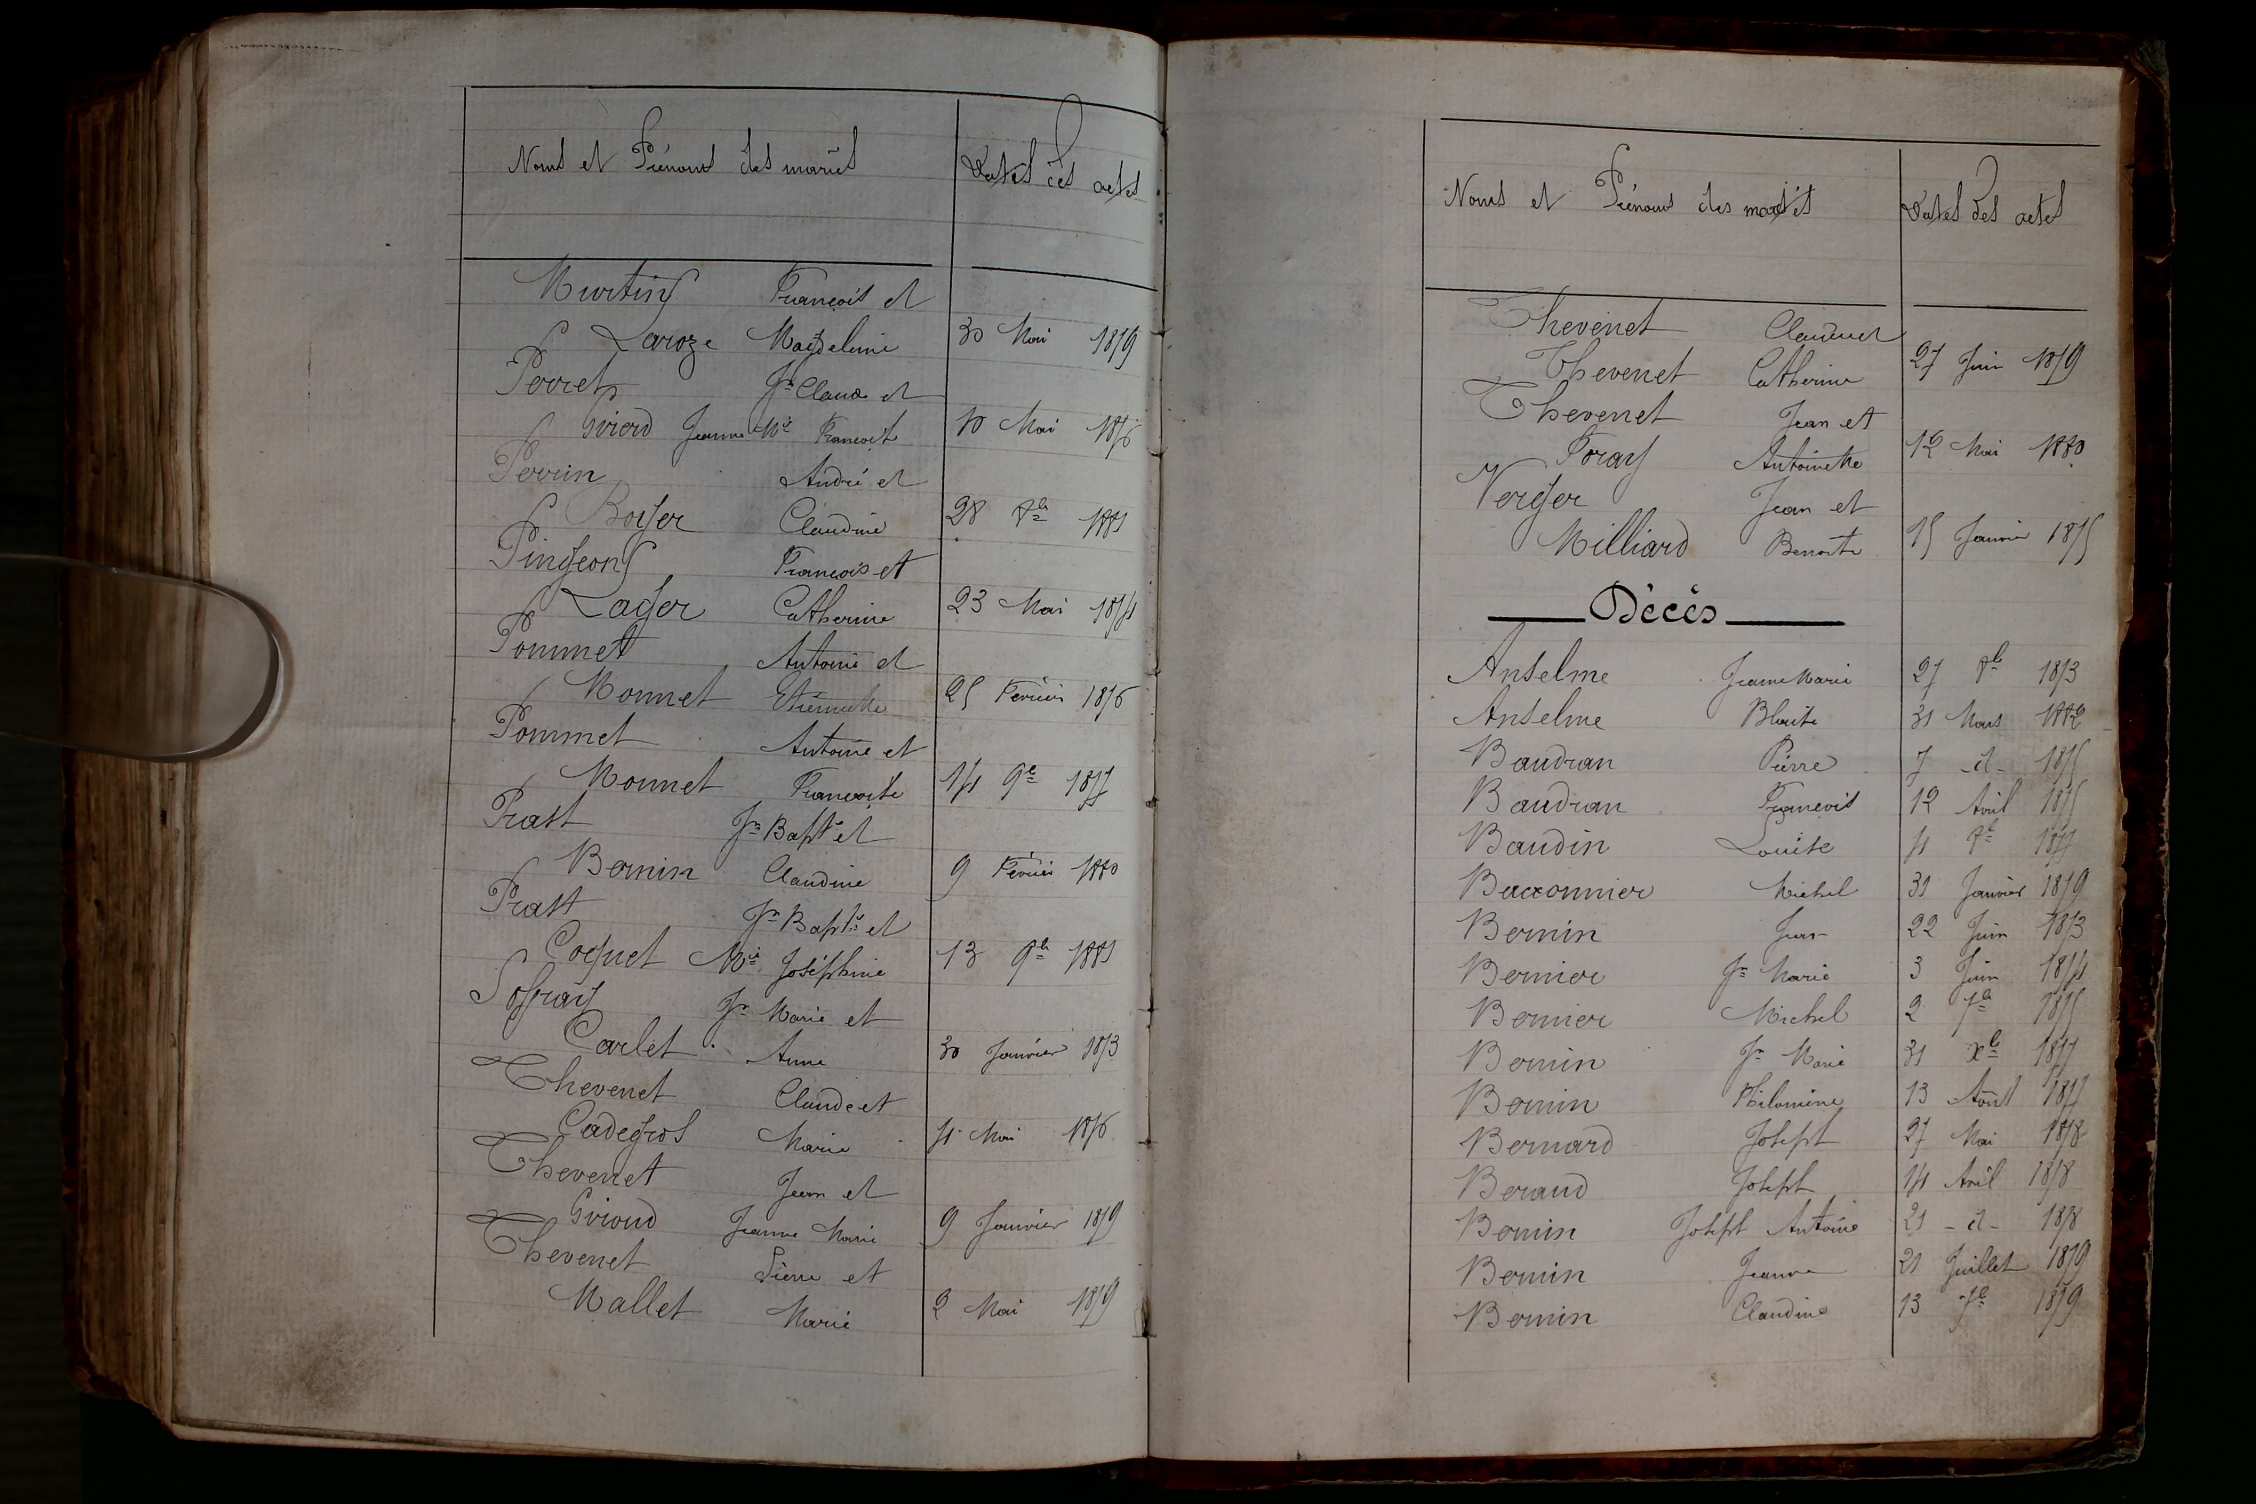 Noms et Prénoms des mariés Dates des actes
Murtin François et
Laroze Magdeleine 30 Mai 1879
Perret Jn Claude et
Girerd Jeanne Mie Françoise 10 Mai 1876
Perrin André et
Boyer Claudine 28 8bre 1881
Pingeon François et
Lager Catherine 23 Mai 1874
Pommet Antoine et
Monnet Etiennette 25 Février 1876
Pommet Antoine et
Monnet Françoise 14 9bre 1877
Prast Jn Bapte et
Bernin Claudine 9 Février 1880
Prast Jn Bapte et
Coquet Mie Joséphine 13 9bre 1881
Soffray Jn Marie et
Carlet Anne 30 Janvier 1873
Thevenet Claude et
Cadegros Marie 4 Mai 1876
Thevenet Jean et
Giroud Jeanne Marie 9 Janvier 1879
Thevenet Pierre et
Mallet Marie 2 Mai 1879
Noms et Prénoms des mariés Dates des actes
Thevenet Claude et
Thevenet Catherine 27 Juin 1879
Thevenet Jean et
Foray Antoinette 12 Mai 1880
Verger Jean et
Milliard Benoite 15 Janvier 1875
Décès
Anselme Jeanne Marie 27 8bre 1873
Anselme 31 Mars 1882
Baudran Pierre 7 -d- 1875
Baudran François 12 Avril 1875
Baudin Louise 4 8bre 1877
Michel 31 Janvier 1879
Bernin Jean 22 Juin 1873
Bernier Jn Marie 3 Juin 1874
Bernier Michel 2 7bre 1875
Bernin Jn Marie 31 Xbre 1877
Bernin Philomène 13 Août 1877
Bernard Joseph 27 Mai 1878
Beraud Joseph 14 Avril 1878
Bernin Joseph Antoine 21 -d- 1878
Bernin Jeanne 21 Juillet 1879
Bernin Claudine 13 7bre 1879